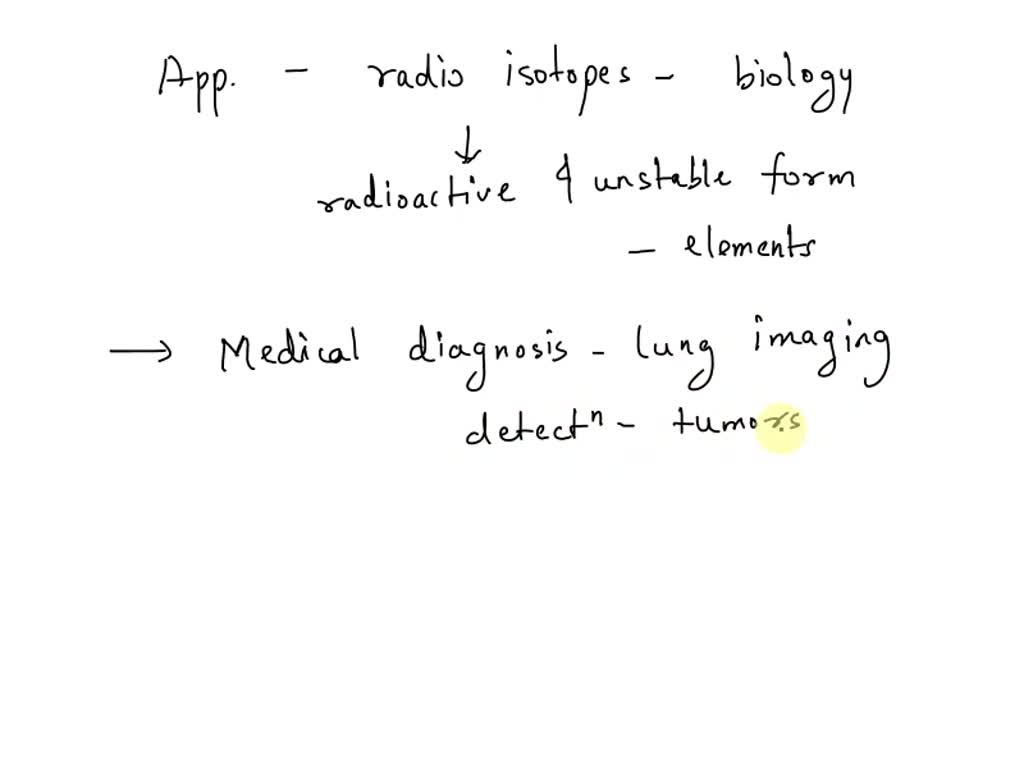 App. - radio isotopes - biology
↓
radioactive & unstable form
- elements
→ Medical diagnosis - lung imaging
detectⁿ - tumors